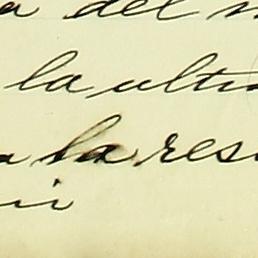 a del
la ulti
a la res